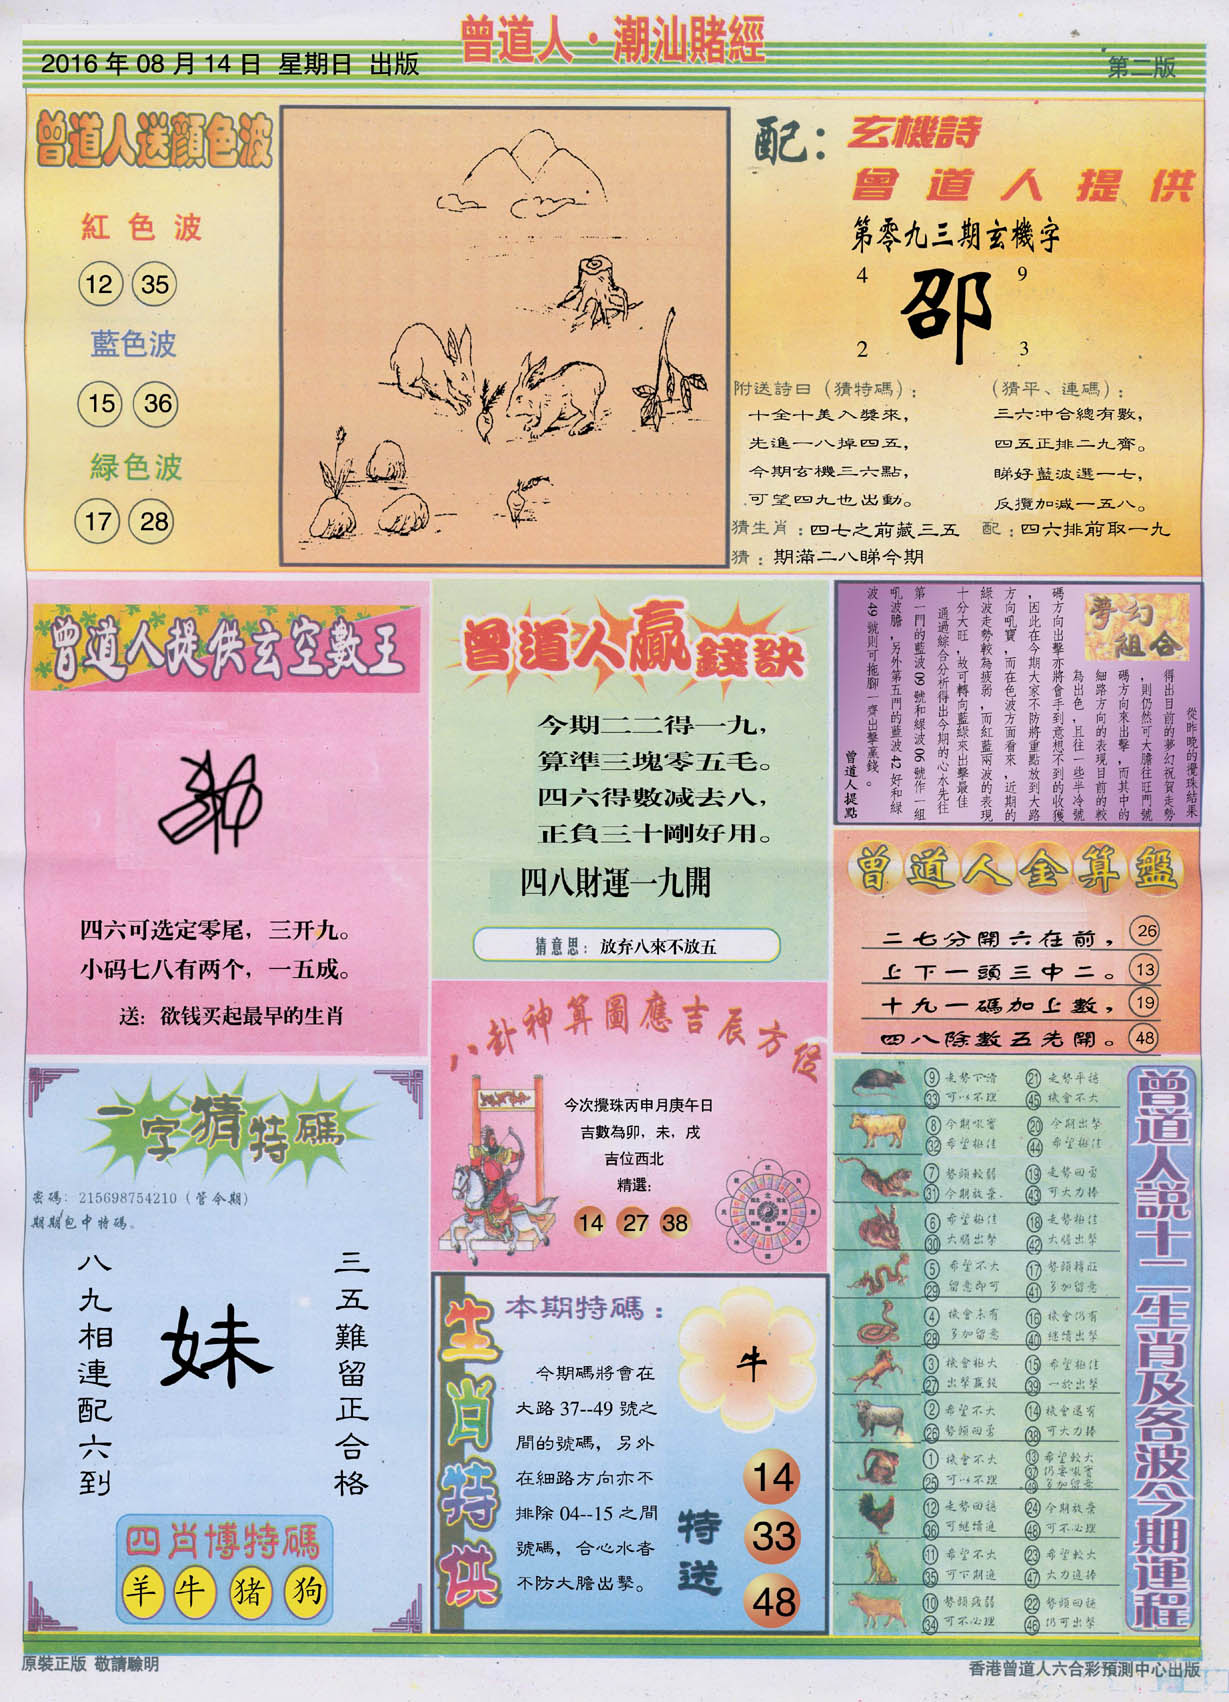 曾道人·潮汕賭經
2016年08月14日 星期日 出版
第二版
曾道人送顔色波
紅色波
12 35
藍色波
15 36
緑色波
17 28
配：玄機詩
曾道人提供
第零九三期玄機字
4 9
邵
2 3
附送詩曰（猜特碼）：
十全十美入獎來，
先進一八掉四五，
今期玄機三六點，
可望四九也出動。
（猜平、連碼）：
三六冲合總有數，
四五正排二九齊。
睇好藍波選一七，
反攬加減一五八。
猜生肖：四七之前藏三五
配：四六排前取一九
猜：期滿二八睇今期
曾道人提供玄空數王
四六可选定零尾，三开九。
小码七八有两个，一五成。
送：欲钱买起最早的生肖
曾道人贏錢訣
今期二二得一九，
算準三塊零五毛。
四六得數減去八，
正負三十剛好用。
四八財運一九開
猜意思：放弃八來不放五
夢幻組合
從昨晚的攪珠結果
得出目前的夢幻祝賀走勢
，則仍然可大膽往旺門號
碼方向來出擊，而其中的
細路方向的表現目前的較
為出色，且往一些半冷號
碼方向出擊亦將會手到意想不到的收獲
，因此在今期大家不防將重點放到大路
方向吼寶，而在色波方面看來，近期的
綠波走勢較為疲弱，而紅藍兩波的表現
十分大旺，故可轉向藍綠來出擊最佳
通過綜合分析得出今期的心水先往
第一門的藍波09號和綠波06號作一組
吼波膽，另外第五門的藍波42好和綠
波49號則可拖腳一齊出擊贏錢。
曾道人提點
曾道人金算盤
二七分開六在前， 26
上下一頭三中二。 13
十九一碼加上數， 19
四八除數五先開。 48
八卦神算圖應吉辰方位
今次攪珠丙申月庚午日
吉數為卯，未，戌
吉位西北
精選：
14 27 38
一字猜特碼
密碼：215698754210（管令期）
期期包中特碼。
三五難留正合格
妹
八九相連配六到
四肖博特碼
羊 牛 猪 狗
生肖特供
本期特碼：
牛
今期碼將會在
大路37--49號之
間的號碼，另外
在細路方向亦不
排除04--15之間
號碼，合心水者
不防大膽出擊。
特送
14
33
48
曾道人説十二生肖及各波今期運程
9 走勢下滑 21 走勢平穩
33 可以不理 45 機會不大
8 今期吼寶 20 今期出擊
32 希望極佳 44 希望極佳
7 勢頭較弱 19 走勢回勇
31 今期放棄 43 可大力捧
6 希望極佳 18 走勢極佳
30 大膽出擊 42 大膽出擊
5 希望不大 17 勢頭轉旺
29 留意即可 41 多加留意
4 機會未有 16 機會仍有
28 多加留意 40 繼續出擊
3 機會極大 15 希望極佳
27 出擊贏錢 39 一於出擊
2 希望不大 14 機會還有
26 勢頭回勇 38 可大力捧
1 機會不大 13 希望較大
25 可以不理 37 仍要吼實
49 多加留意
12 走勢回穩 24 今期放棄
36 可繼續追 48 可不必理
11 希望不大 23 希望較大
35 可下期追 47 大力追捧
10 勢頭疲弱 22 勢頭回穩
34 可不必理 46 仍可出擊
原裝正版 敬請驗明
香港曾道人六合彩預測中心出版